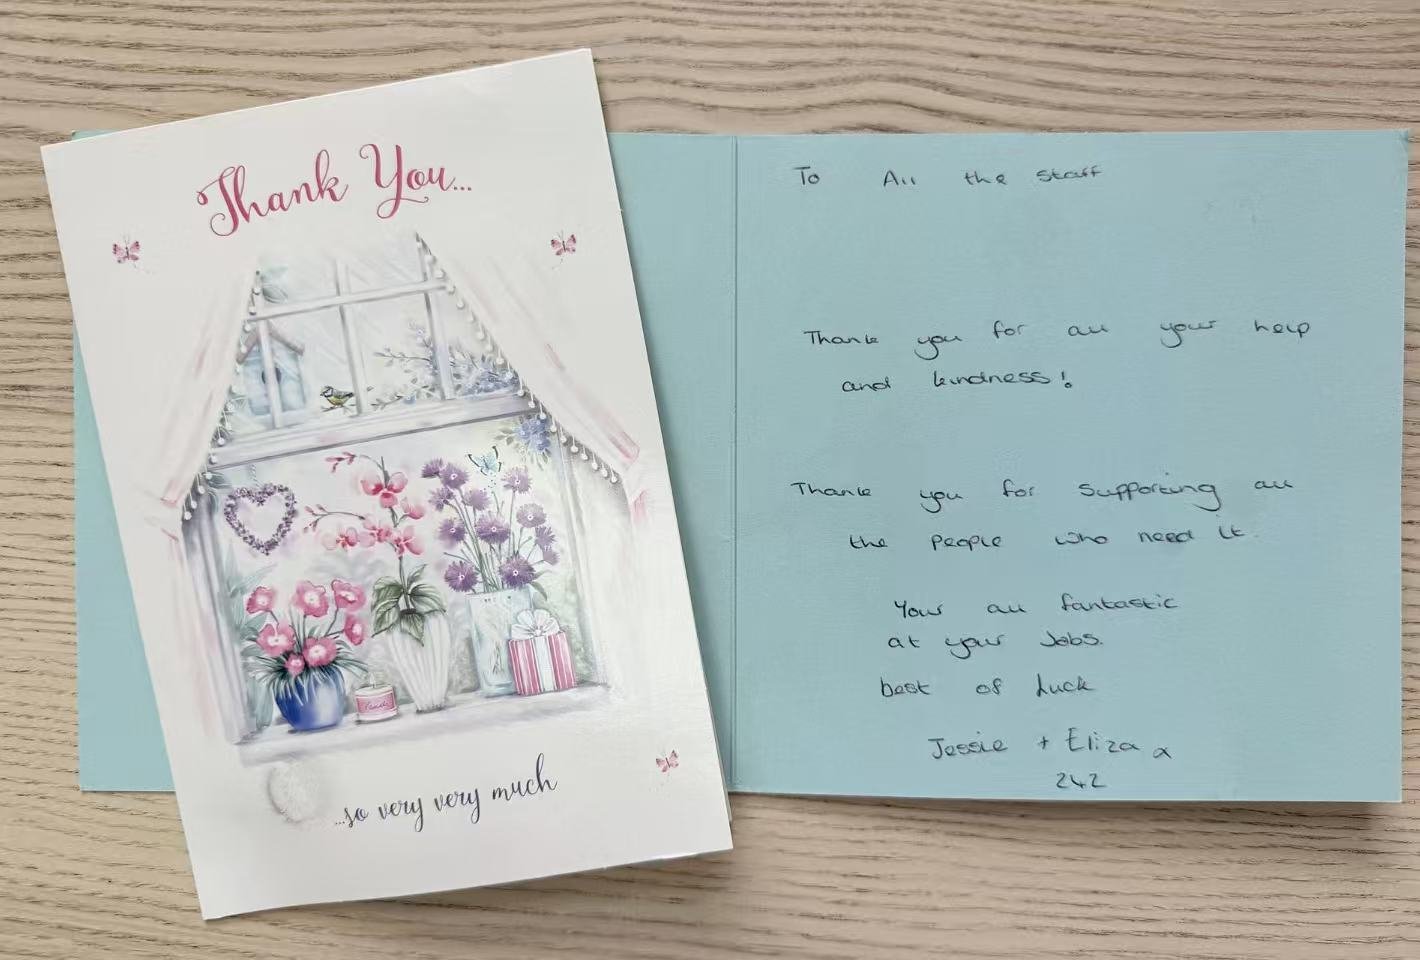 Thank You...
...so very very much
To All the staff
Thank you for all your help
and kindness!
Thank you for supporting all
the people who need it.
Your all fantastic
at your Jobs.
best of luck
Jessie + Eliza x
242